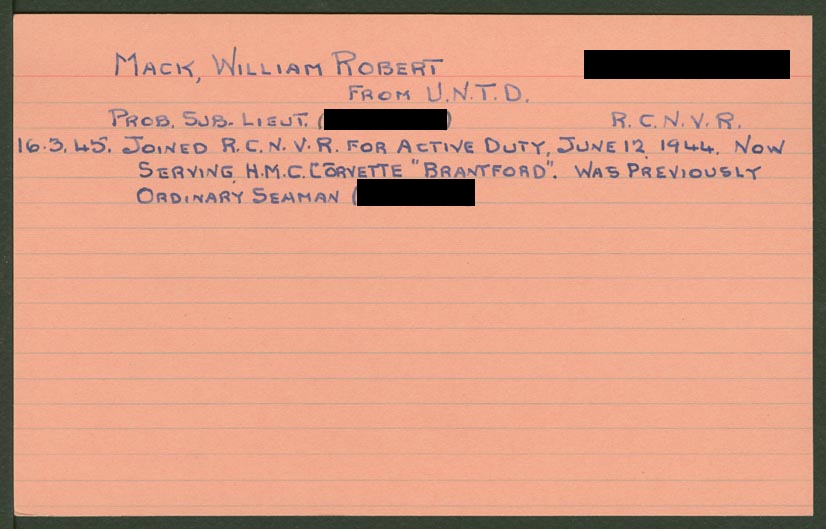 MACK, WILLIAM ROBERT
FROM U.N.T.D.
PROB. SUB-LIEUT. ( ) R.C.N.V.R.
16.3.45. JOINED R.C.N.V.R. FOR ACTIVE DUTY, JUNE 12, 1944. NOW
SERVING, H.M.C. CORVETTE "BRANTFORD". WAS PREVIOUSLY
ORDINARY SEAMAN (